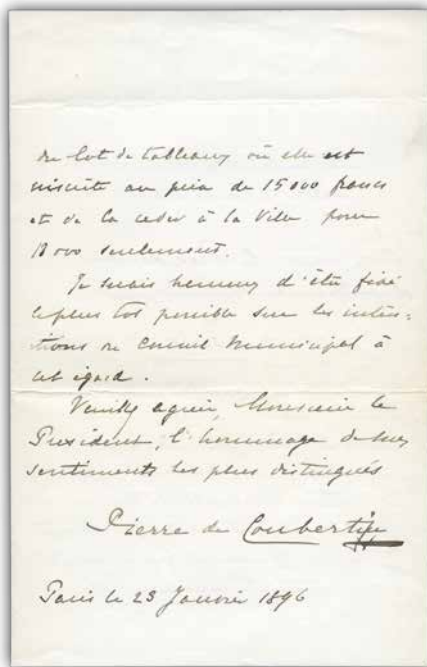 du lot de tableaux où elle est
inscrite au prix de 15000 francs
et de la céder à la Ville pour
seulement.
Je serais heureux d'être fixé
le plus tôt possible sur les inten-
tions du Conseil Municipal à
cet égard.
Veuillez agréer, Monsieur le
Président, l'hommage de mes
sentiments les plus distingués
Pierre de Coubertin
Paris le 23 Janvier 1896